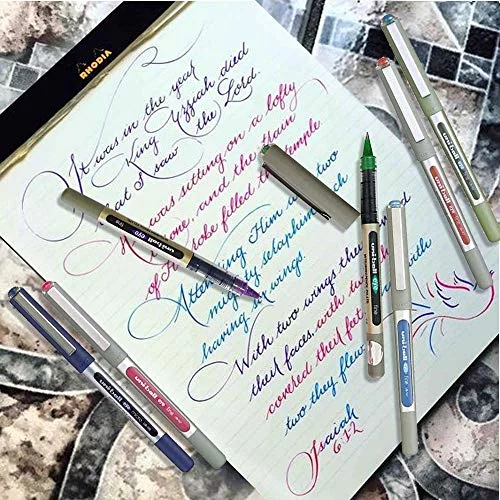 RHODIA
It was in the year
King Uzziah died
that I saw the Lord.
He was sitting on a lofty
throne, and the train
of His robe filled the temple
Attending Him are two
mighty seraphim, each
having six wings.
With two wings they
they faces, with two
covered they feet with
two they flew
Isaiah
6:1-2
uni-ball eye fine
uni-ball eye fine
uni-ball eye
uni-ball eye fine
uni-ball eye
uni-ball eye